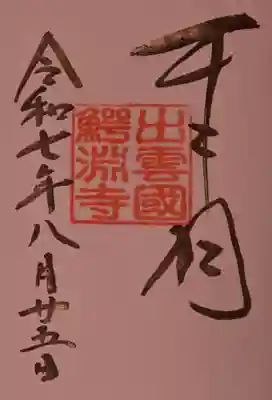 出雲國
鰐淵寺
令和七年八月廿五日